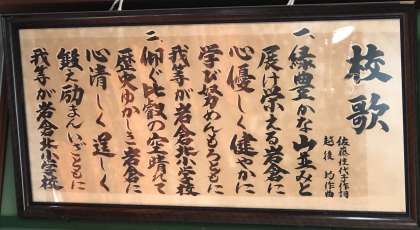 校歌
佐藤佳代子作詞
越後 均作曲
一、緑豊かな山並みと
展け栄える岩倉に
心優しく健やかに
学び努めんもろともに
我等が岩倉北小学校
二、仰ぐ比叡の空晴れて
歴史ゆかしき岩倉に
心清しく逞しく
鍛え励まんいざともに
我等が岩倉北小学校